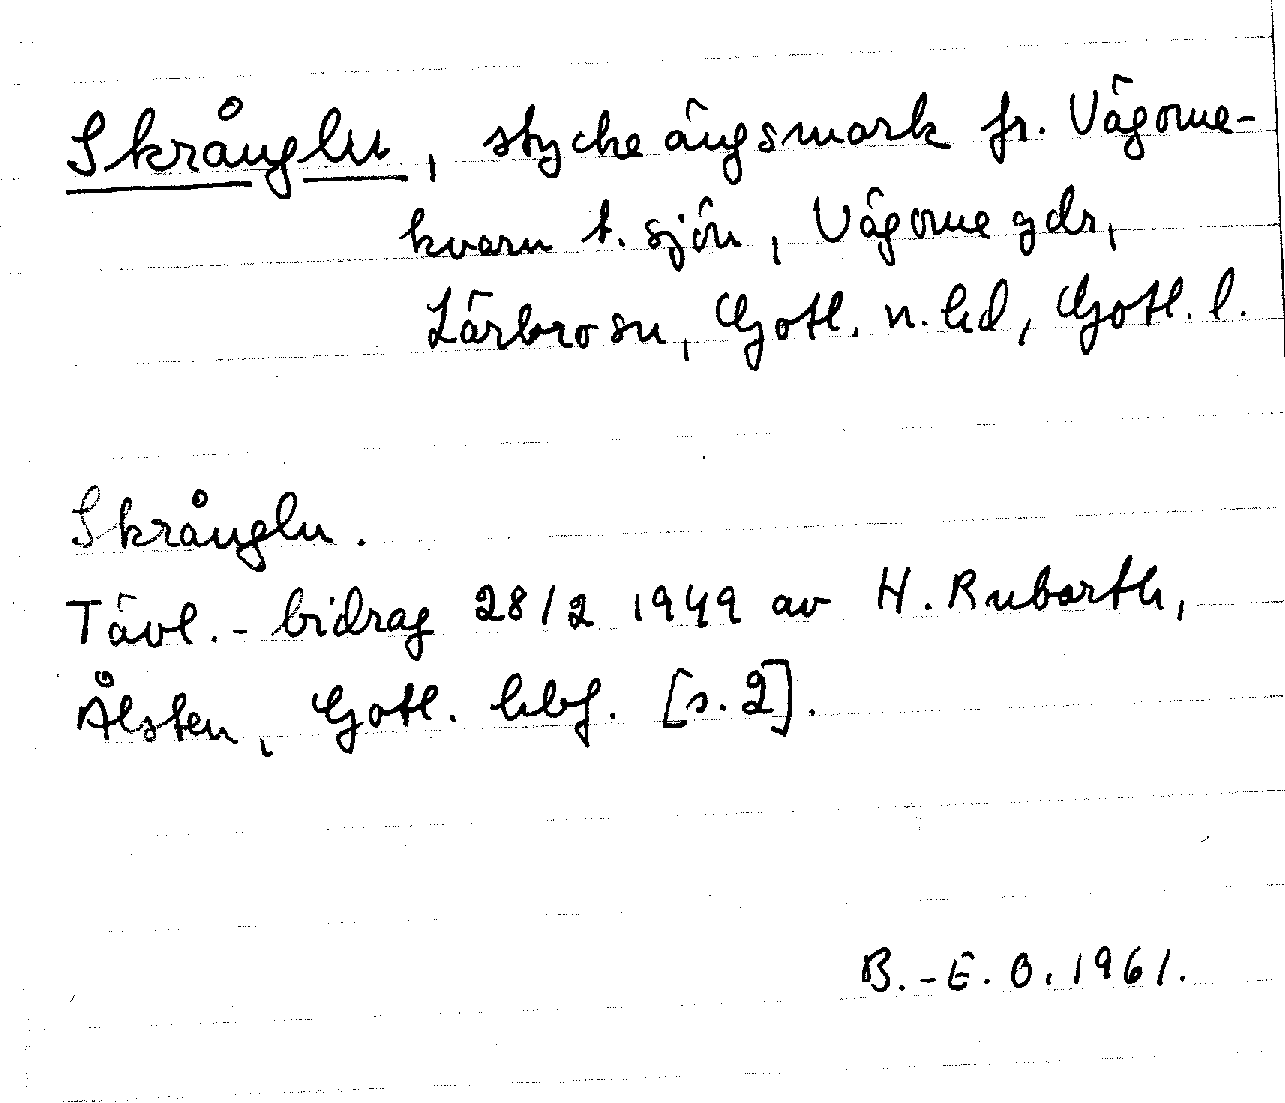 Skrånglu, stycke ängsmark fr. Vägome-
kvarn t. sjön, Vägome gdr,
Lärbro sn, Gotl. n. hd, Gotl. l.
Skrånglu.
Tävl.-bidrag 28/2 1949 av H. Rubarth,
Ålsten, Gotl. hbf. [s. 2].
B.-E. O. 1961.